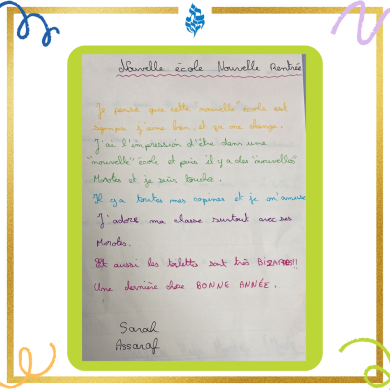 Nouvelle école Nouvelle Rentrée
Je pense que cette "nouvelle" école est
sympa j'aime bien, et ça me change.
J'ai l'impression d'être dans une
"nouvelle" école et puis il y a des "nouvelles"
Morotes et je suis
Il y a toutes mes copines et je m'amuse
J'adore ma classe surtout avec ses
Morotes.
Et aussi les toilettes sont très BIZARRES!!
Une dernière chose BONNE ANNÉE.
Sarah
Assaraf